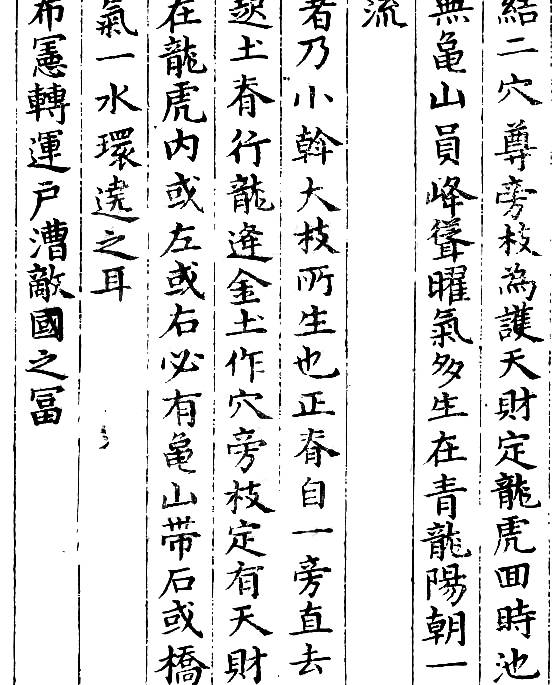 結二穴尊旁枝為護天財定龍虎回時池
無龜山員峰聳曜氣多生在青龍陽朝一
流
者乃小榦大枝所生也正脊自一旁直去
土脊行龍逢金土作穴旁枝定有天財
在龍虎内或左或右必有龜山帶石或橋
氣一水環遶之耳
布憲轉運戶漕敵國之冨